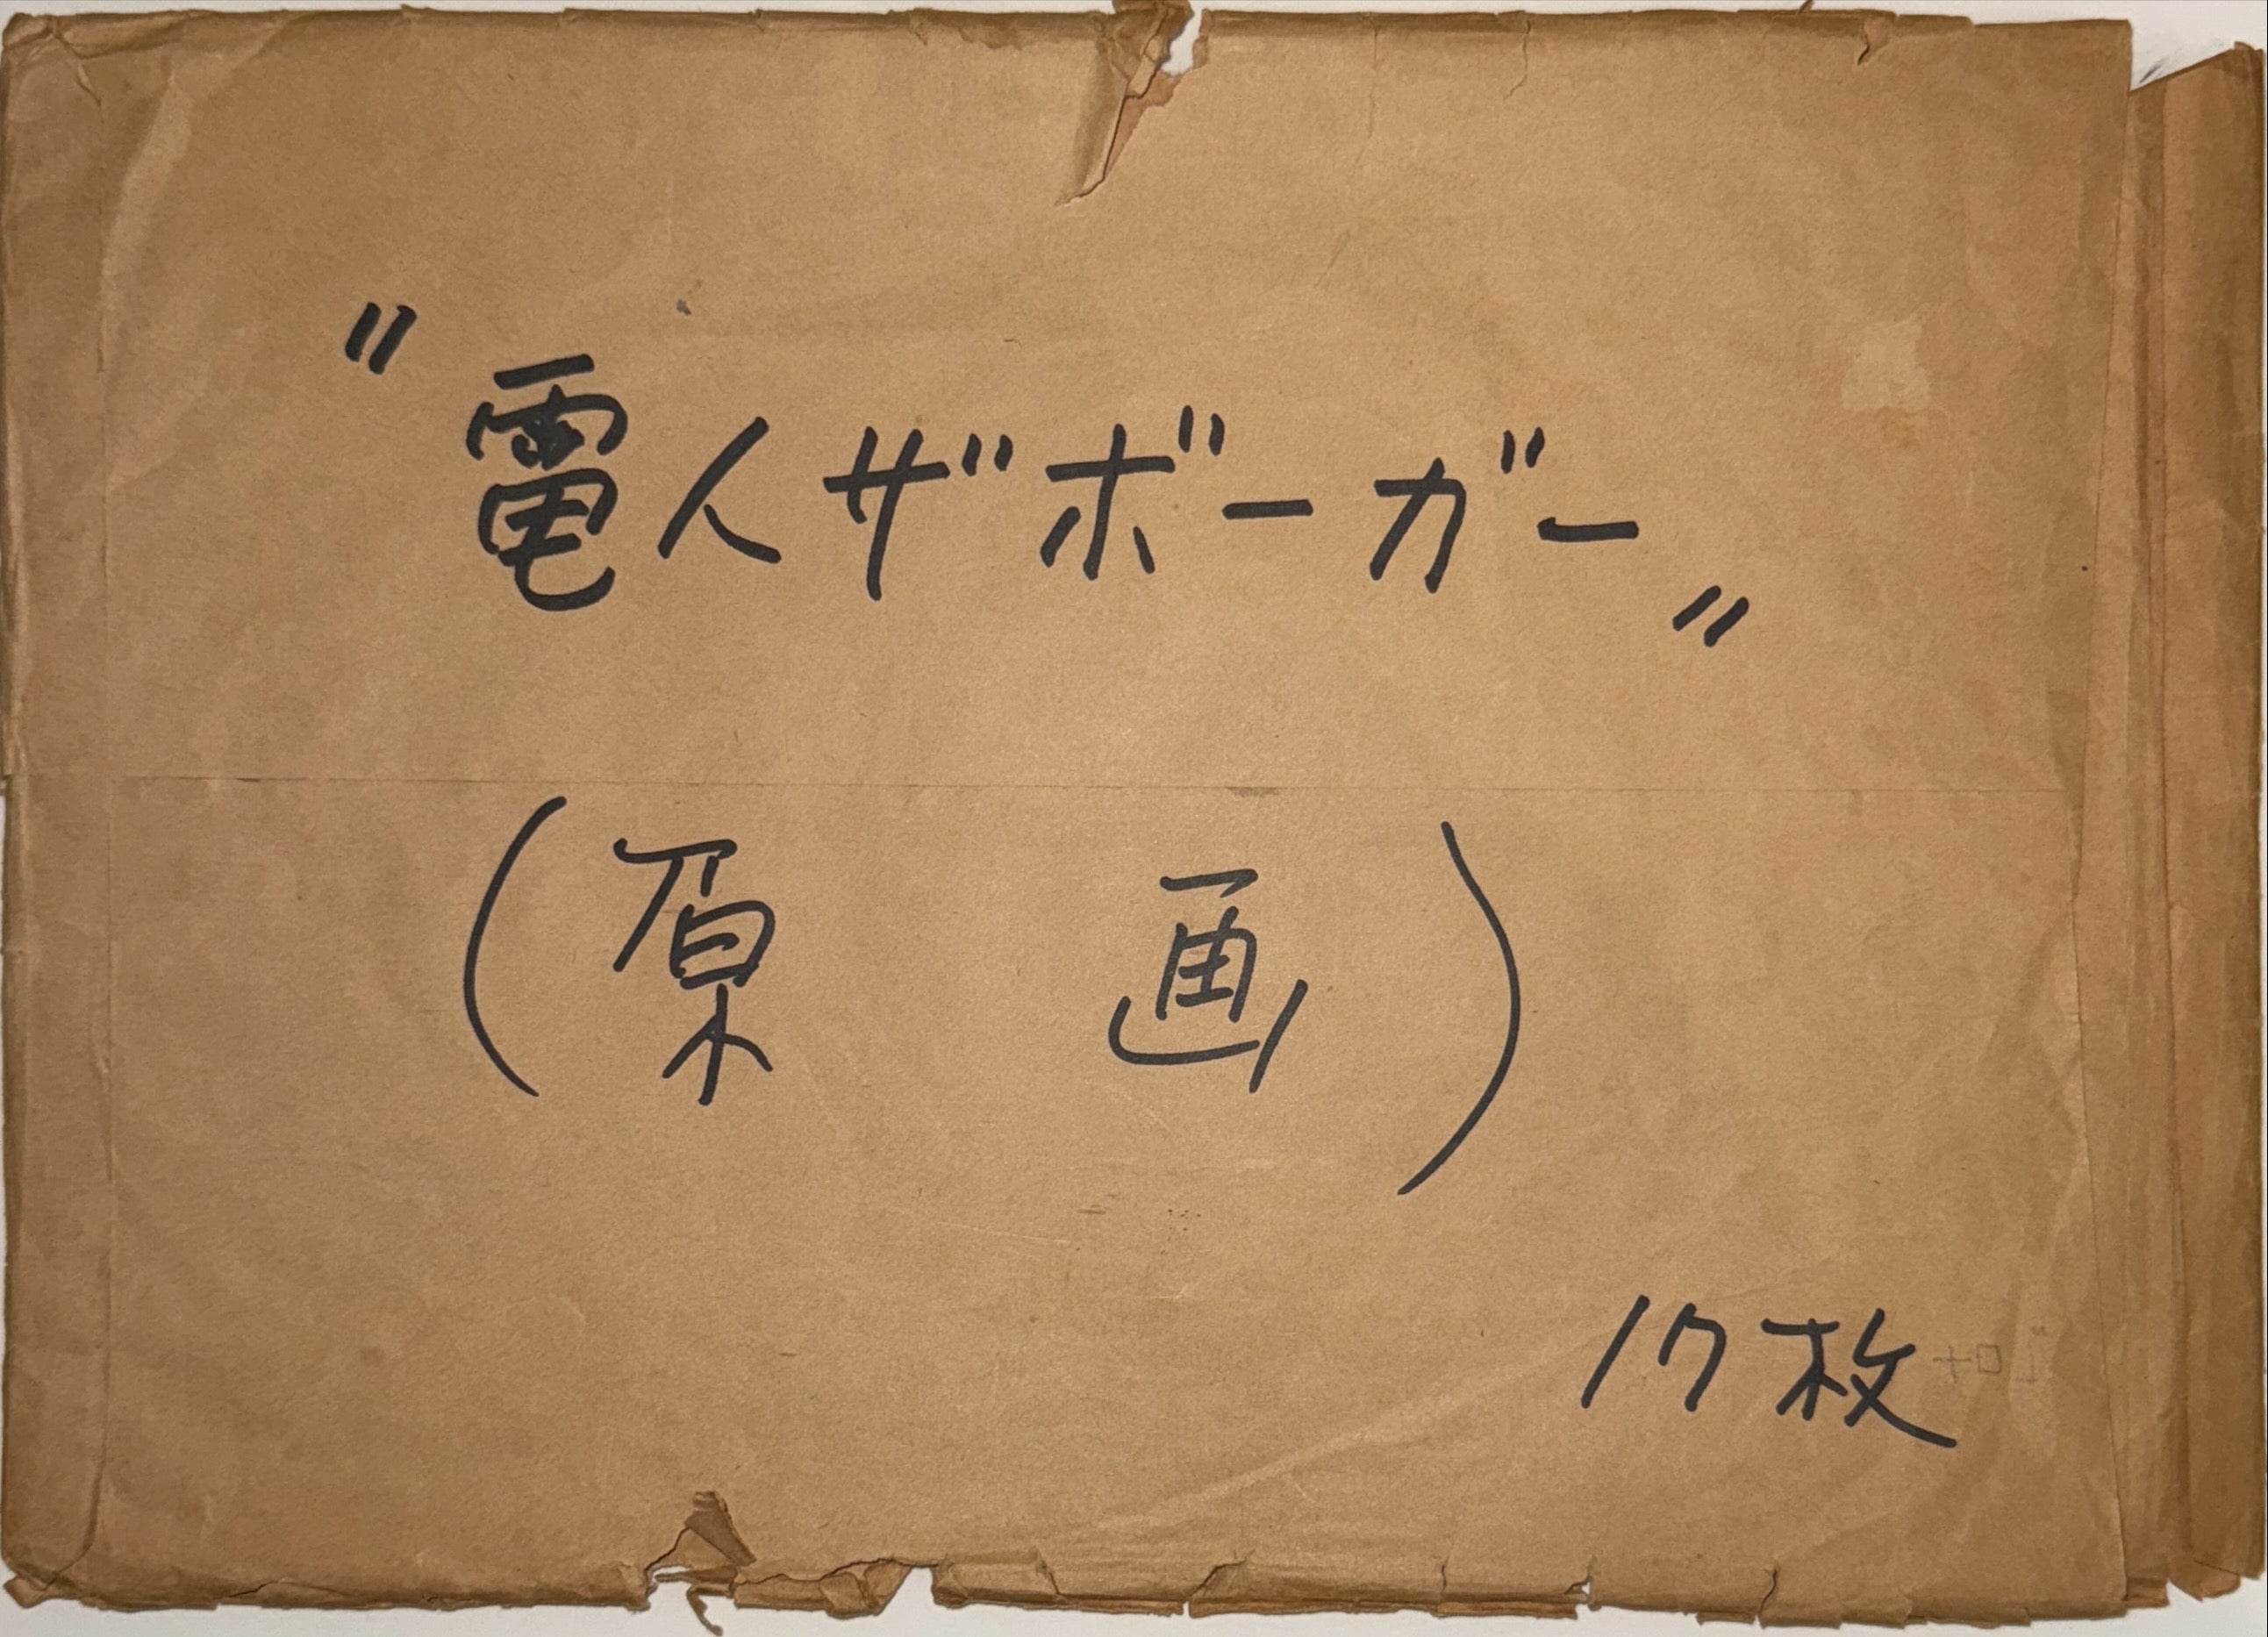 "電人ザボーガー"
(原 画)
17枚